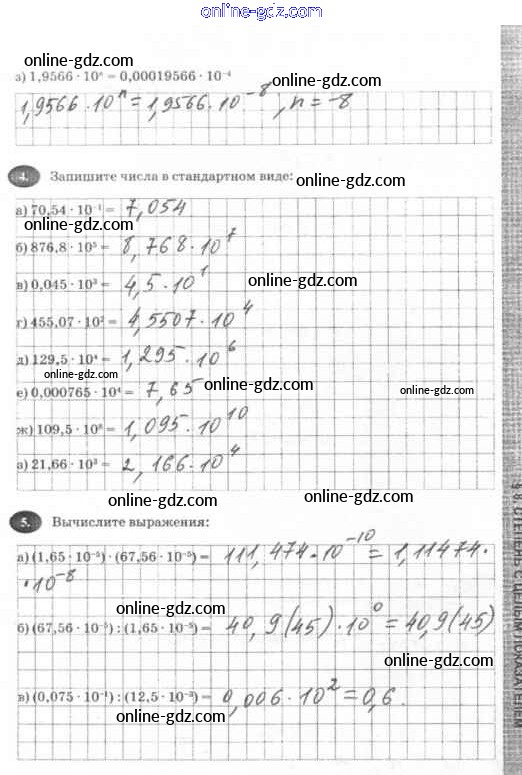 online-gdz.com
online-gdz.com
з) 1,9566 · 10ⁿ = 0,00019566 · 10⁻⁴
online-gdz.com
1,9566 · 10ⁿ = 1,9566 · 10⁻⁸, n = -8
4. Запишите числа в стандартном виде:
online-gdz.com
а) 70,54 · 10⁻¹ = 7,054
online-gdz.com
б) 876,8 · 10⁵ = 8,768 · 10⁷
в) 0,045 · 10³ = 4,5 · 10¹
online-gdz.com
г) 455,07 · 10² = 4,5507 · 10⁴
online-gdz.com
д) 129,5 · 10⁴ = 1,295 · 10⁶
online-gdz.com
е) 0,000765 · 10⁴ = 7,65
online-gdz.com
online-gdz.com
ж) 109,5 · 10⁸ = 1,095 · 10¹⁰
online-gdz.com
з) 21,66 · 10³ = 2,166 · 10⁴
online-gdz.com
online-gdz.com
5. Вычислите выражения:
online-gdz.com
а) (1,65 · 10⁻⁵) · (67,56 · 10⁻⁵) = 111,474 · 10⁻¹⁰ = 1,11474 ·
· 10⁻⁸
online-gdz.com
б) (67,56 · 10⁻⁵) : (1,65 · 10⁻⁵) = 40,9(45) · 10⁰ = 40,9(45)
online-gdz.com
в) (0,075 · 10⁻¹) : (12,5 · 10⁻³) = 0,006 · 10² = 0,6.
online-gdz.com
§ 8. СТЕПЕНЬ С ЦЕЛЫМ ПОКАЗАТЕЛЕМ